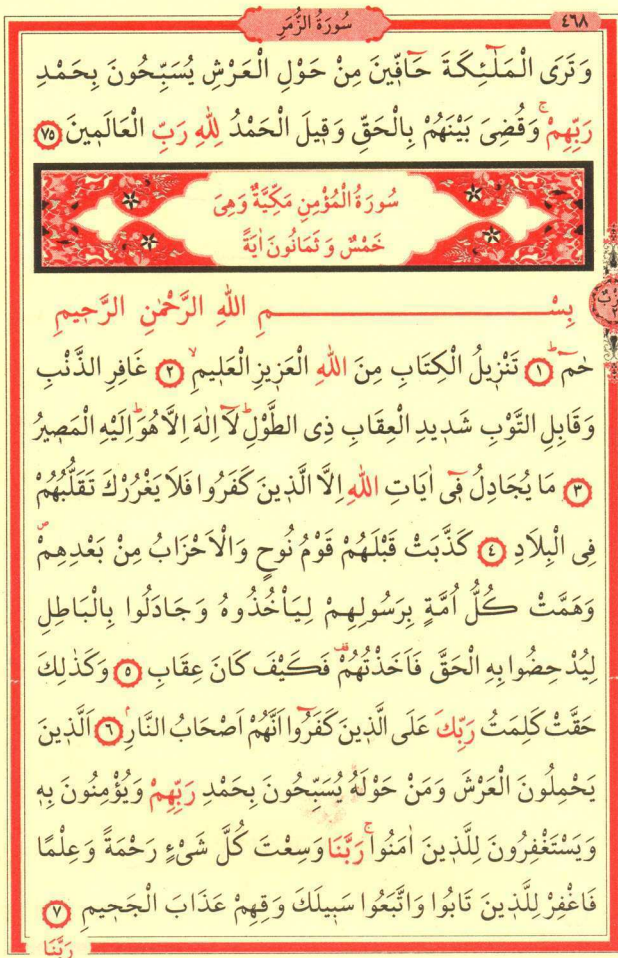 سُورَةُ الزُّمَرِ
٤٦٨
وَتَرَى الْمَلٰٓئِكَةَ حَٓافّٖينَ مِنْ حَوْلِ الْعَرْشِ يُسَبِّحُونَ بِحَمْدِ
رَبِّهِمْۚ وَقُضِىَ بَيْنَهُمْ بِالْحَقِّ وَقٖيلَ الْحَمْدُ لِلّٰهِ رَبِّ الْعَالَمٖينَ ٧٥
سُورَةُ الْمُؤْمِنِ مَكِّيَّةٌ وَهِىَ
خَمْسٌ وَ ثَمَانُونَ اٰيَةً
بِسْمِ اللّٰهِ الرَّحْمٰنِ الرَّحٖيمِ
حٰمٓۜ ١ تَنْزٖيلُ الْكِتَابِ مِنَ اللّٰهِ الْعَزٖيزِ الْعَلٖيمِۙ ٢ غَافِرِ الذَّنْبِ
وَقَابِلِ التَّوْبِ شَدٖيدِ الْعِقَابِ ذِى الطَّوْلِؕ لَٓا اِلٰهَ اِلَّا هُوَؕ اِلَيْهِ الْمَصٖيرُ
٣ مَا يُجَادِلُ فٖٓى اٰيَاتِ اللّٰهِ اِلَّا الَّذٖينَ كَفَرُوا فَلَا يَغْرُرْكَ تَقَلُّبُهُمْ
فِى الْبِلَادِ ٤ كَذَّبَتْ قَبْلَهُمْ قَوْمُ نُوحٍ وَالْاَحْزَابُ مِنْ بَعْدِهِمْࣕ
وَهَمَّتْ كُلُّ اُمَّةٍ بِرَسُولِهِمْ لِيَاْخُذُوهُ وَجَادَلُوا بِالْبَاطِلِ
لِيُدْحِضُوا بِهِ الْحَقَّ فَاَخَذْتُهُمْࣞ فَكَيْفَ كَانَ عِقَابِ ٥ وَكَذٰلِكَ
حَقَّتْ كَلِمَتُ رَبِّكَ عَلَى الَّذٖينَ كَفَرُٓوا اَنَّهُمْ اَصْحَابُ النَّارِۢ ٦ اَلَّذٖينَ
يَحْمِلُونَ الْعَرْشَ وَمَنْ حَوْلَهُ يُسَبِّحُونَ بِحَمْدِ رَبِّهِمْ وَيُؤْمِنُونَ بِهٖ
وَيَسْتَغْفِرُونَ لِلَّذٖينَ اٰمَنُواۚ رَبَّنَا وَسِعْتَ كُلَّ شَىْءٍ رَحْمَةً وَعِلْمًا
فَاغْفِرْ لِلَّذٖينَ تَابُوا وَاتَّبَعُوا سَبٖيلَكَ وَقِهِمْ عَذَابَ الْجَحٖيمِ ٧
رَبَّنَا